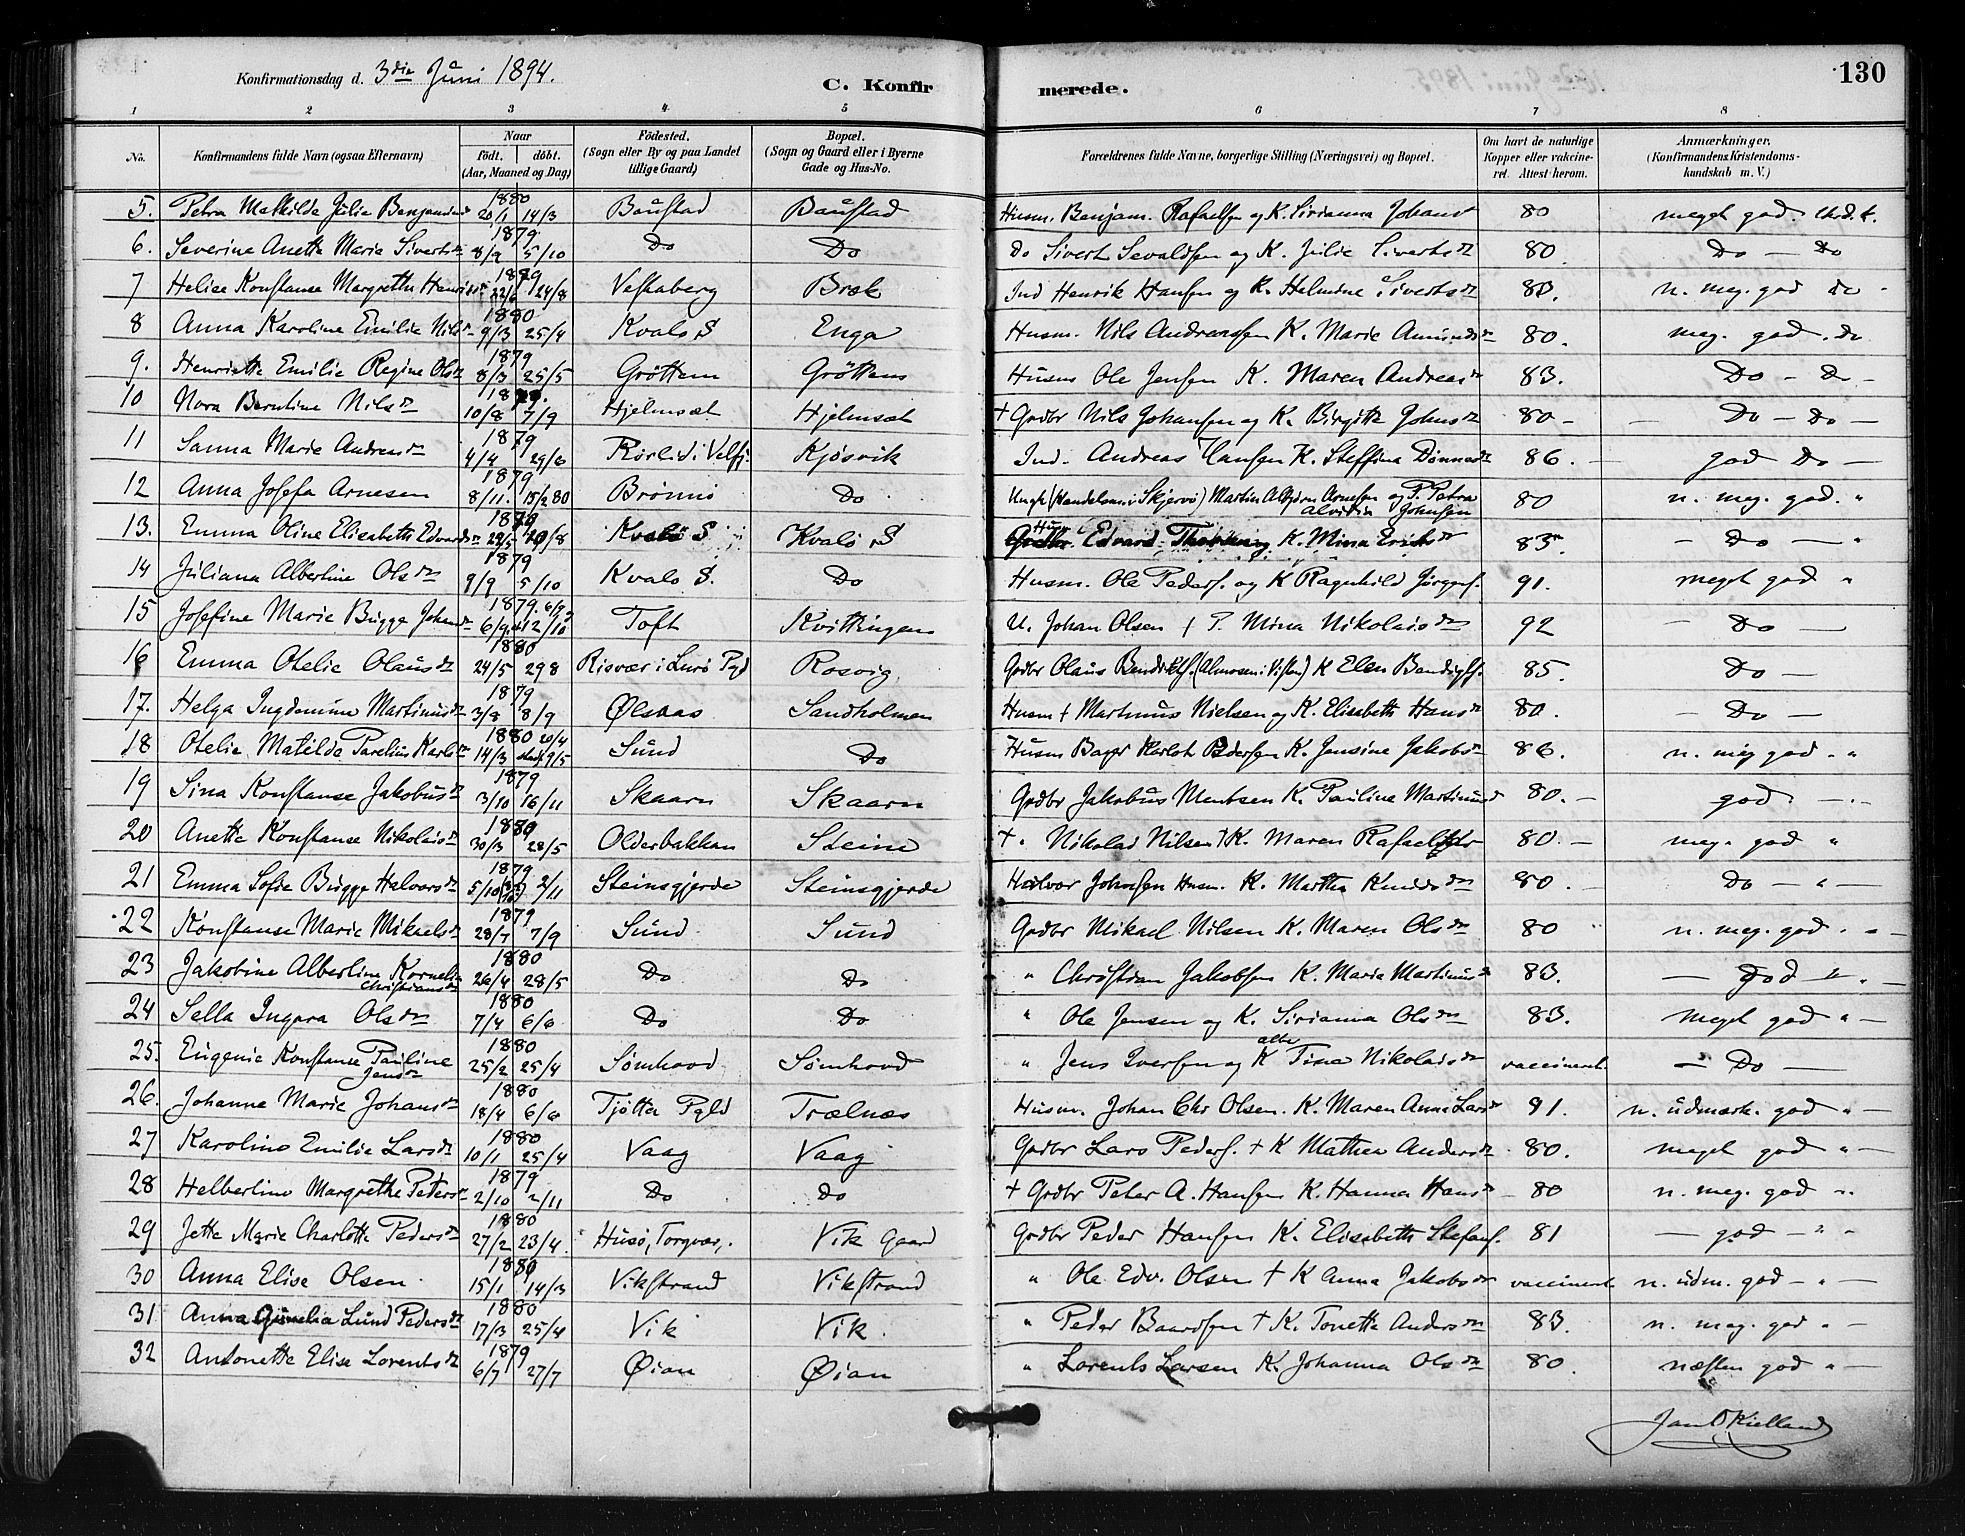 Konfirmationsdag d. 3die Juni 1894.
C. Konfirmerede.
130
1 2 3 4 5 6 7 8
No. Konfirmandens fulde Navn (ogsaa Efternavn) Naar født. døbt. (Aar, Maaned og Dag) Fødested. (Sogn eller By og paa Landet tillige Gaard) Bopæl. (Sogn og Gaard eller i Byerne Gade og Hus-No. Forældrenes fulde Navne, borgerlige Stilling (Næringsvei) og Bopæl. Om havt de naturlige Kopper eller vaccineret. Attest herom. Anmærkninger. (Konfirmandens Kristendomskundskab m. V.)
5. Petra Mathilde Julie Benjamins 1880 20/1 14/3 Baustad Baustad Husm. Benjam. Rafaelsen og K. Sirianna Johans 80 meget god
6. Severine Anette Marie Sivertsdr 1879 8/9 5/10 Do Do Do Sivert Sevaldsen og K. Julie Sivertsdr 80. Do — Do
7 Helise Konstanse Margrethe Henriksdr 1879 22/6 24/8 Vestaberg Bræk Ind Henrik Hansen og K. Helmine Sivertsdr 80. n. meg. god do
8 Anna Karoline Emilie Nilsdr 1880 9/3 25/4 Kvalø S Enga Husm. Nils Andreassen K. Marie Amundsdr 80. meg. god. do
9. Henriette Emilie Regine Olsdr 1879 8/3 25/5 Grøttem Grøttem Husm Ole Jensen K. Maren Andreasdr 83. Do — Do —
10 Nora Berntine Nilsdr 10/8 7/9 Hjelmsæt Hjelmsæt † Grdbr Nils Johansen og K. Birgitte Johnsdr 80 — Do — Do —
11 Sanna Marie Andreasdr 1879 4/4 29/6 Rørlid i Velfj. Kjøsvik Ind. Andreas Hansen K. Steffina Dønnesdr 86. — god Do —
12 Anna Josefa Arnesen 1879 8/11. 15/2 80 Brønnø Do Ungk (Handelsm. i Skjervø) Martin Arnesen og P. Petra Alvidia Johnsen 80 n. meg. god. "
13. Emma Oline Elisabeth Edvardsdr 1879 29/5 Kvalø S Kvalø S Husm Edvard K. Mina Eriksdr 83. — Do — "
14 Juliana Albertine Olsdr 1879 9/9 5/10 Kvalø S. Do Husm. Ole Peders. og K Ragnhild Jørgens. 91. meget god "
15 Josefine Marie Bugge Johansdr 1879. 6/9 12/10 Toft Kvittingen U. Johan Olsen P. Mina Nikolaisdr 92 — Do —
16 Emma Otelie Olausdr 1880 24/5 29 8 Risvær i Lurø Pgd Rosvig Grdbr Olaus K Elen 85. Do —
17. Helga Ingdemine Martinusdr 1879 3/8 8/9 Ølsaas Sandholmen Husm † Martinus Nielsen og K. Elisabeth Hansdr 80. — Do —
18 Otelie Matilde Parelius Karlsdr 1880 20/4 14/3 9/5 Sund Do Husm Karlot Pedersen K. Jensine Jakobsdr 86. n. meg god. "
19 Sina Konstanse Jakobusdr 1879 3/10 16/11 Skaarn Skaarn Grdbr Jakobus Mentsen K. Pauline Martinusd 80. — god —
20 Anette Konstanse Nikolaisdr 30/3 28/5 Olderbakken Steine † " Nikolai Nilsen † K. Maren Rafaelsdr 80. — meg. god "
21 Emma Sofie Bugge Halvorsdr 1879 5/10 2/11 Steinsgjerde Steinsgjerde Halvor Johnsen Husm. K. Martha Knudsdr 80. — Do — " —
22 Konstanse Marie Mikaelsdr 1879 28/7 7/9 Sund Sund Grdbr Mikael Nilsen K. Maren Olsdr 80 n. meg. god. " —
23 Jakobine Albertine Kornelia Christiansdr 1880 26/4 28/5 Do Do " Christian Jakobsen K. Maria Martinusdr 83. — god " —
24 Sella Ingera Olsdr 1880 7/4 6/6 Do Do " Ole Jensen og K. Sirianna Olsdr 83. Meget god " —
25. Eugenie Konstanse Pauline Jensdr 1880 25/2 25/4 Sømhovd Sømhovd " Jens Iversen og K Tina Nikolaisdr vaccineret — Do —
26. Johanne Marie Johansdr 1880 18/4 6/6 Tjøtta Pgld Trælnæs Husm. Johan Chr Olsen. K. Maren Anna Larsdr 91. n. udmærk. god " —
27 Karoline Emilie Larsdr 1880 10/1 25/4 Vaag Vaag Grdbr Lars Peders. † K Mathea Andersdr 80. meget god " —
28 Helbertine Margrethe Petersdr 1879 2/10 2/11 Do Do † Grdbr Peter A. Hansen K. Hanna Hansdr — 80 n. meg. god "
29 Jette Marie Charlotte Pedersdr 1880 27/2 23/4 Husø, Torgvær. Vik Gaard Grdbr Peder Hansen K. Elisabeth Stefans. 81 — god — " —
30 Anna Elise Olsen 1880 15/1 14/3 Vikstrand Vikstrand " Ole Edv. Olsen † K Anna Jakobsdr vaccineret n. udm. god — " —
31 Anna Lund Pedersdr 1880 17/3 25/4 Vik Vik. " Peder Baardsen † K. Tonette Andersdr 83. n. meg. god " —
32 Antonette Elise Lorentsdr 1879 6/7 27/7 Øian Øian " Lorents Larsen K. Johanna Olsdr 80. næsten god " —
Jan O Kielland